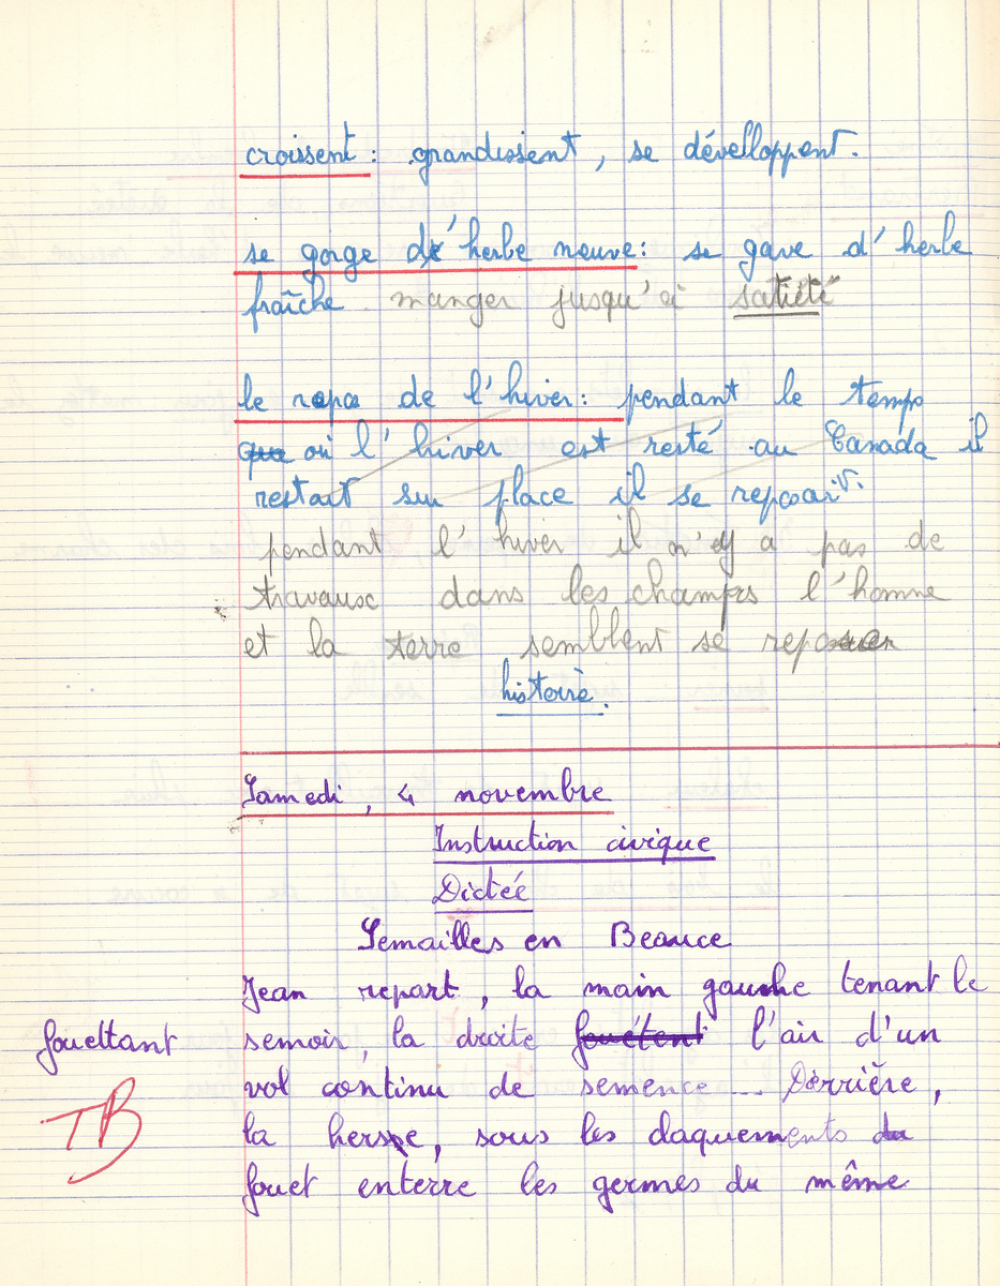 croissent : grandissent, se dévelloppent.
se gorge d'herbe neuve : se gave d'herbe
fraîche. manger jusqu'à satiété
le repos de l'hiver : pendant le temps
que où l'hiver est resté au Canada il
restait sur place il se reposait.
pendant l'hiver il n'y a pas de
travaux dans les champs l'homme
et la terre semblent se reposer
histoire.
Samedi, 4 novembre
Instruction civique
Dictée
Semailles en Beauce
Jean repart, la main gauche tenant le
fouettant semoir, la droite fouétent l'air d'un
vol continu de semence... Dèrrière,
TB
la herse, sous les claquements du
fouet enterre les germes du même